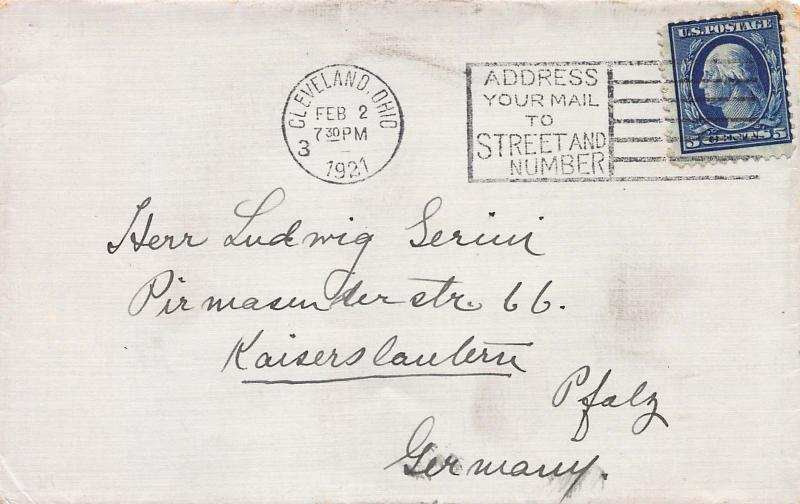 U.S. POSTAGE
CLEVELAND, OHIO
FEB 2
7 30 PM
3
1921
ADDRESS
YOUR MAIL
TO
STREET AND
NUMBER
5 CENTS 5
Herr Ludwig Serini
Pirmasenderstr. 66.
Kaiserslautern
Pfalz
Germany.